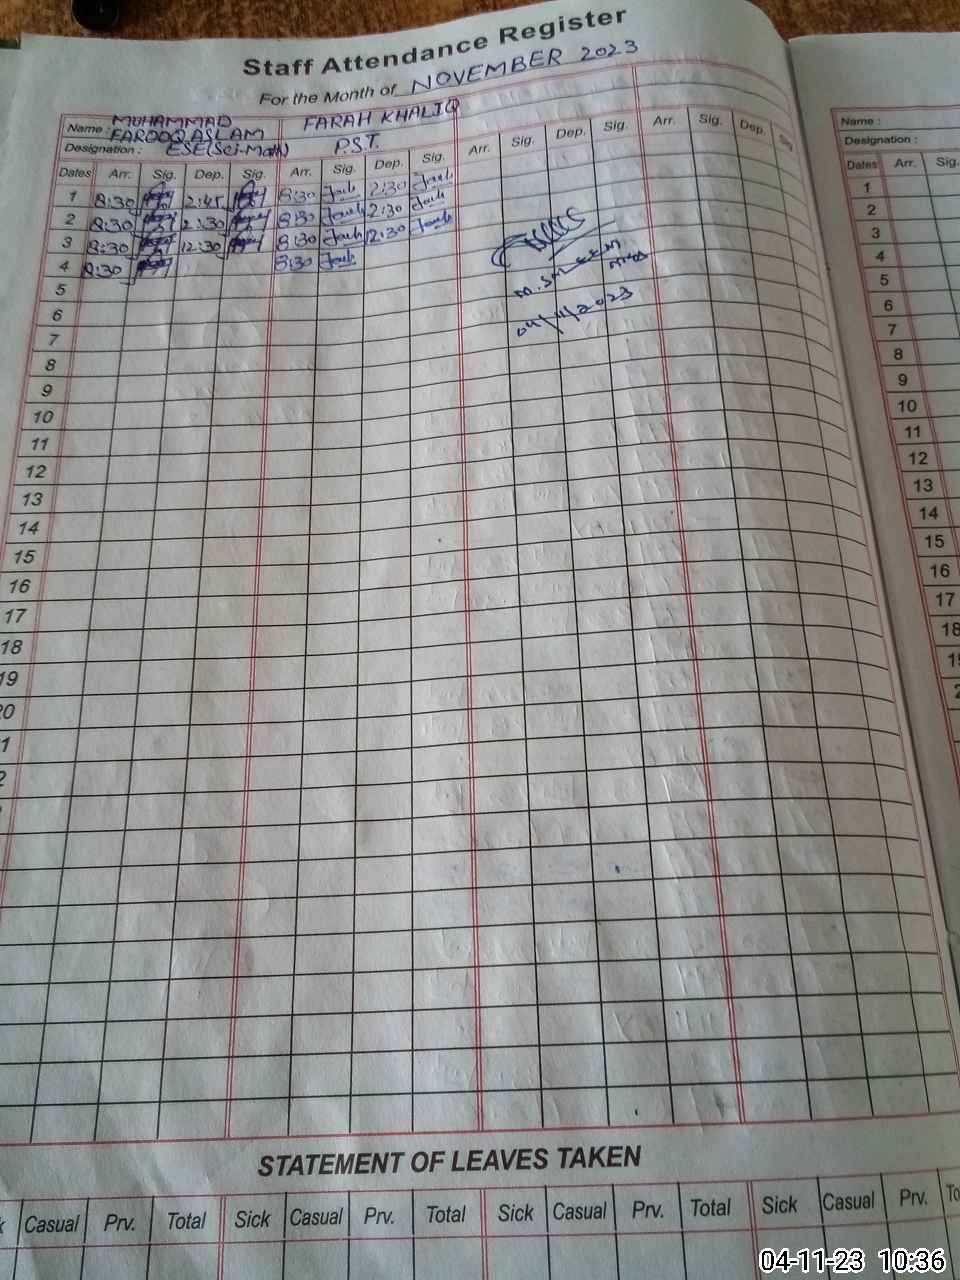 Staff Attendance Register
For the Month of NOVEMBER 2023
Name : MUHAMMAD FAROOQ ASLAM FARAH KHALIQ
Designation : ESE(Sci-Math) P.S.T.
Dates Arr. Sig. Dep. Sig. Arr. Sig. Dep. Sig. Arr. Sig. Dep. Sig. Arr. Sig. Dep. Sig
1 8:30 2:45 8:30 2:30
2 8:30 2:30 8:30 2:30
3 8:30 12:30 8:30 12:30
4 8:30 8:30
5
6
04/11/2023
7
8
9
10
11
12
13
14
15
16
17
18
19
20
1
2
STATEMENT OF LEAVES TAKEN
k Casual Prv. Total Sick Casual Prv. Total Sick Casual Prv. Total Sick Casual Prv. To
Name :
Designation :
Dates Arr. Sig.
1
2
3
4
5
6
7
8
9
10
11
12
13
14
15
16
17
18
04-11-23 10:36